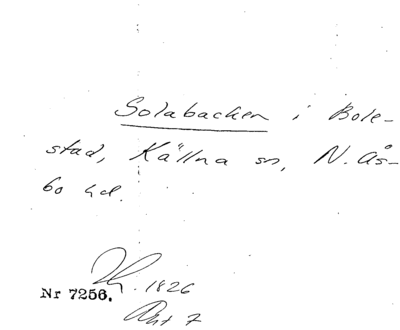 Solabacken i Bole-
stad, Källna sn, N. Ås-
bo hd.
Nr 7256.
1826
Akt 7